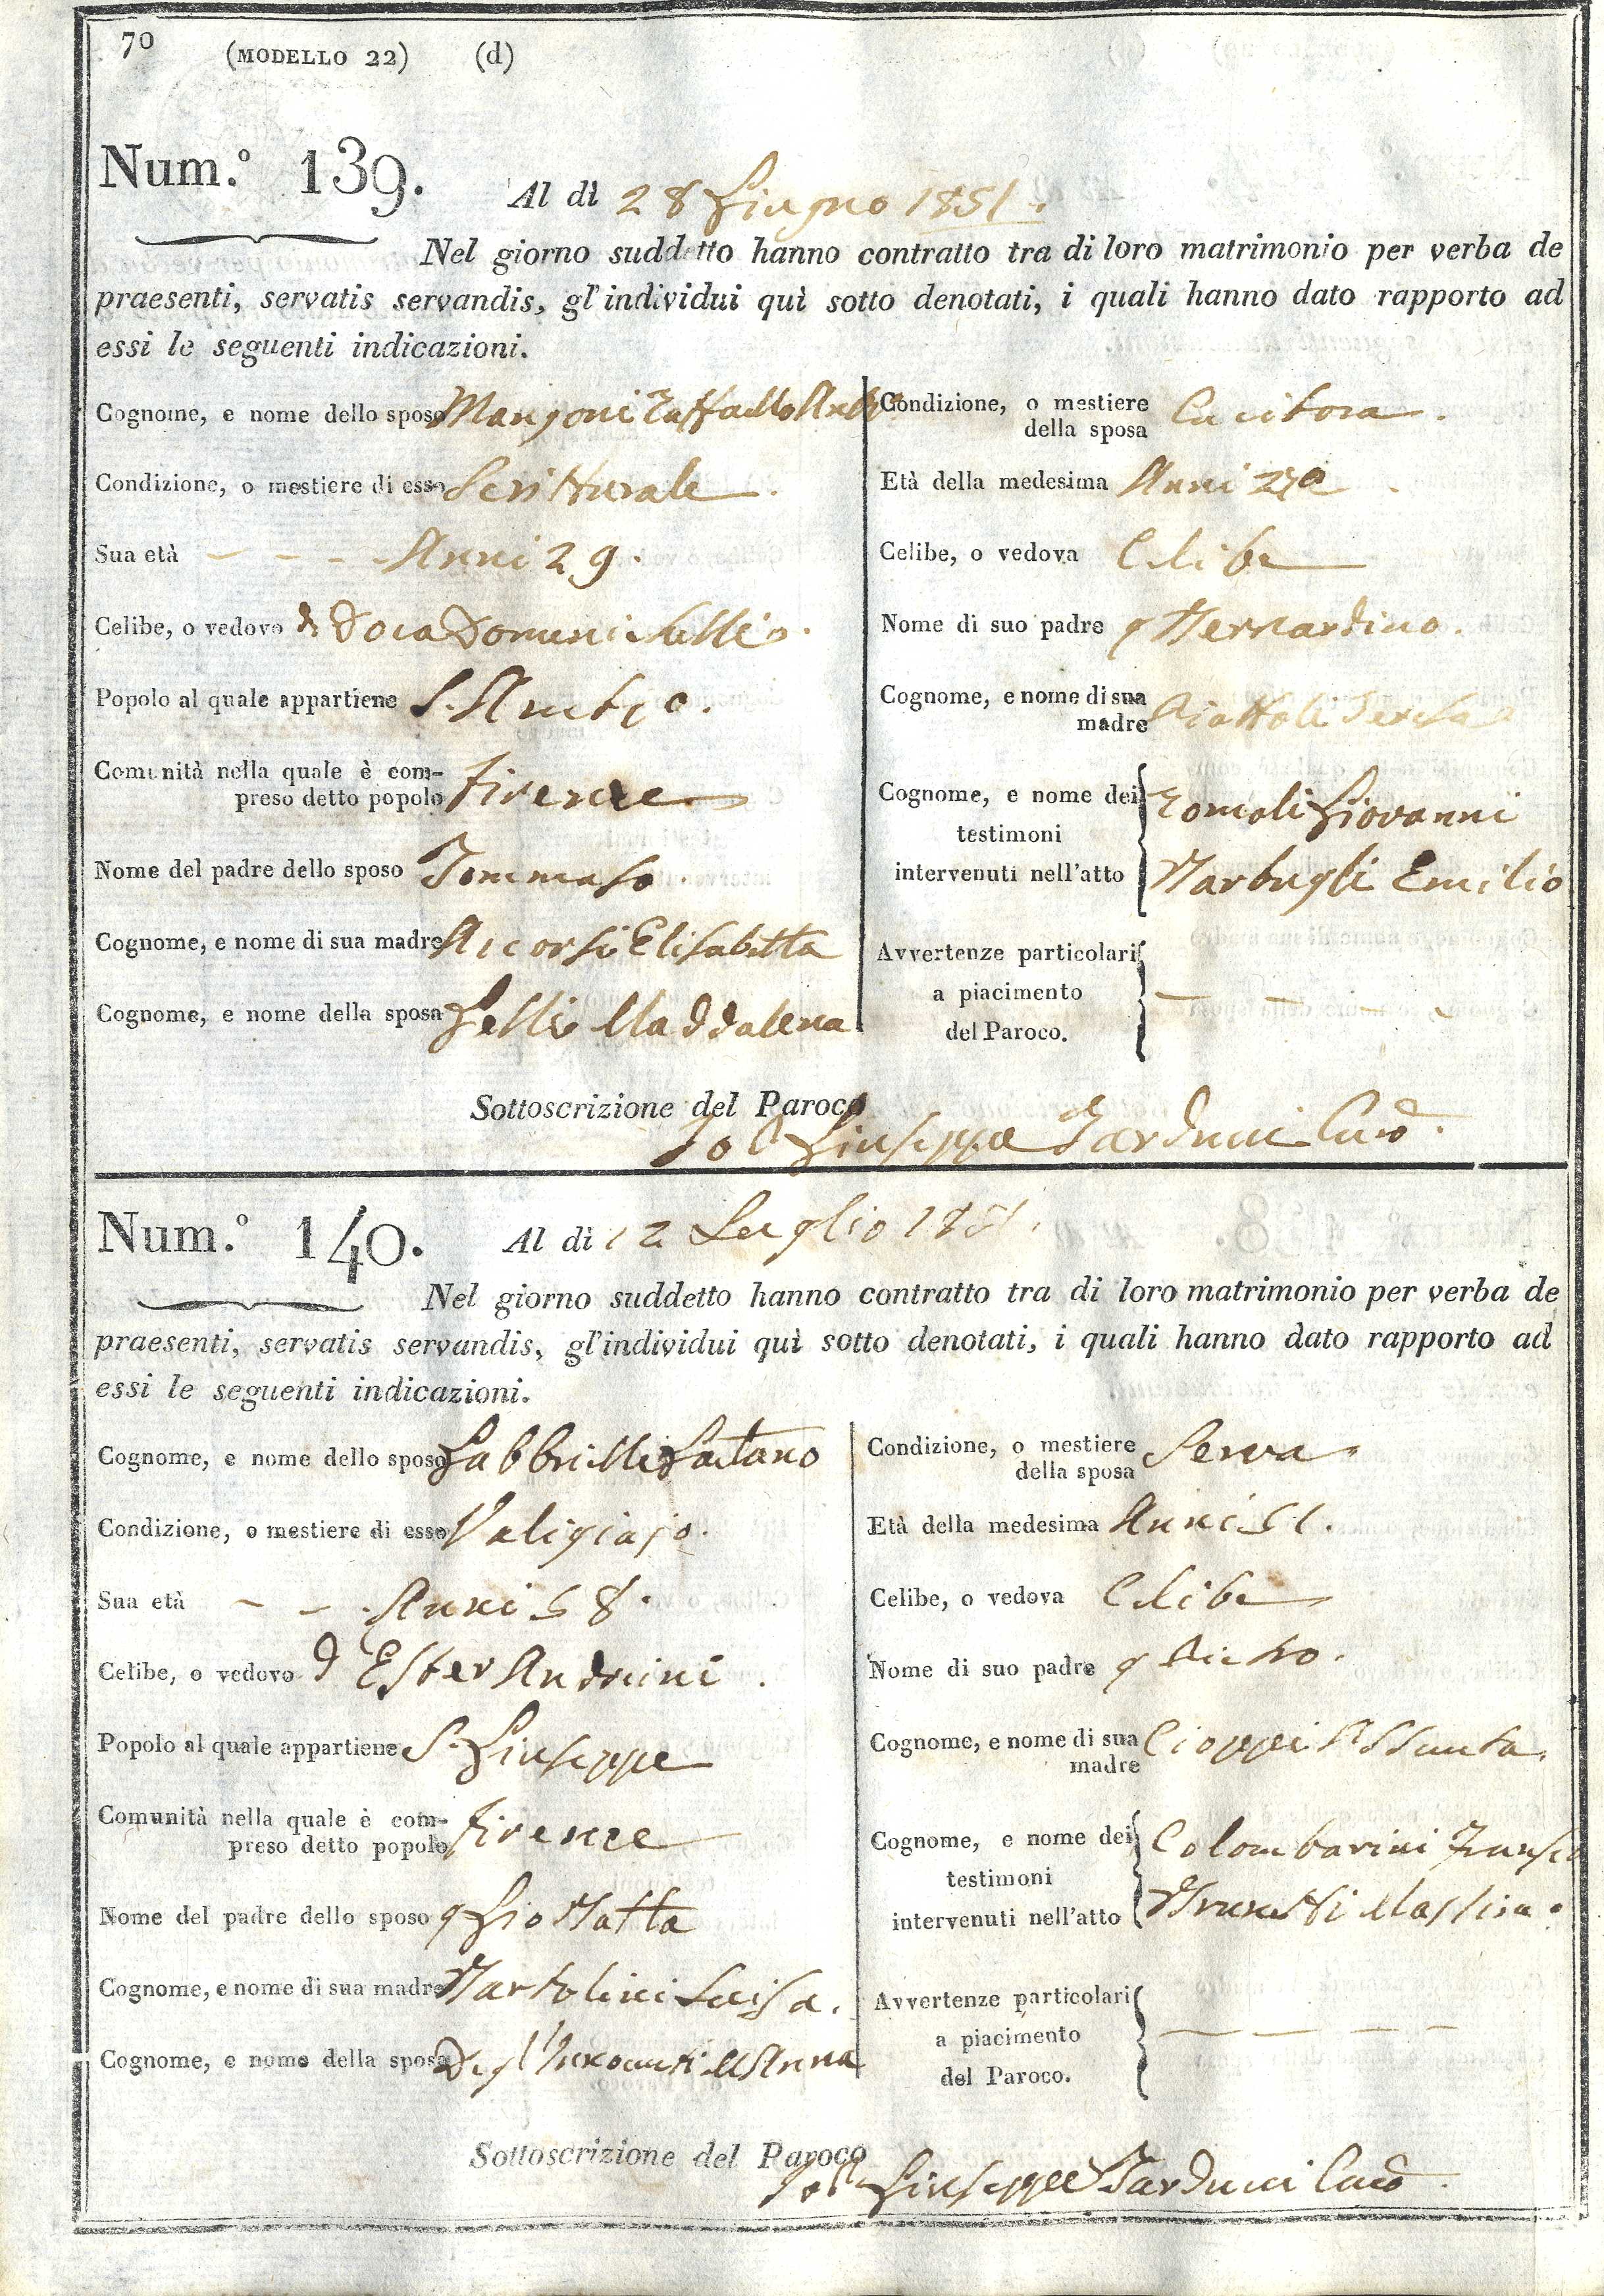 70 (MODELLO 22) (d)
Num.º 139. Al dì 28 Giugno 1851.
Nel giorno suddetto hanno contratto tra di loro matrimonio per verba de
praesenti, servatis servandis, gl'individui quì sotto denotati, i quali hanno dato rapporto ad
essi le seguenti indicazioni.
Cognome, e nome dello sposo Mangoni Raffaello
Condizione, o mestiere di esso Scritturale
Sua età - - - Anni 29.
Celibe, o vedovo
Popolo al quale appartiene
Comunità nella quale è com-
preso detto popolo Firenze
Nome del padre dello sposo Tommaso
Cognome, e nome di sua madre Elisabetta
Cognome, e nome della sposa Maddalena
Condizione, o mestiere
della sposa Cucitora.
Età della medesima Anni
Celibe, o vedova Celibe
Nome di suo padre q Bernardino.
Cognome, e nome di sua
madre Piattoli Teresa
Cognome, e nome dei Romoli Giovanni
testimoni
intervenuti nell'atto Barbugli Emilio
Avvertenze particolari
a piacimento
del Paroco.
Sottoscrizione del Paroco
Giuseppe Tarducci
Num.º 140. Al dì 12 Luglio 1851.
Nel giorno suddetto hanno contratto tra di loro matrimonio per verba de
praesenti, servatis servandis, gl'individui quì sotto denotati, i quali hanno dato rapporto ad
essi le seguenti indicazioni.
Cognome, e nome dello sposo Gabbrielli Gaetano
Condizione, o mestiere di esso Valigiajo.
Sua età - - Anni 58.
Celibe, o vedovo d Ester Andreini
Popolo al quale appartiene S. Giuseppe
Comunità nella quale è com-
preso detto popolo Firenze
Nome del padre dello sposo q Gio Batta
Cognome, e nome di sua madre Bartolini Luisa.
Cognome, e nome della sposa Degl'Innocenti Anna
Condizione, o mestiere
della sposa Serva
Età della medesima Anni 51.
Celibe, o vedova Celibe
Nome di suo padre q Pietro.
Cognome, e nome di sua
madre Cioppi Assunta.
Cognome, e nome dei Colombarini
testimoni
intervenuti nell'atto Brunetti
Avvertenze particolari
a piacimento
del Paroco.
Sottoscrizione del Paroco
Giuseppe Tarducci